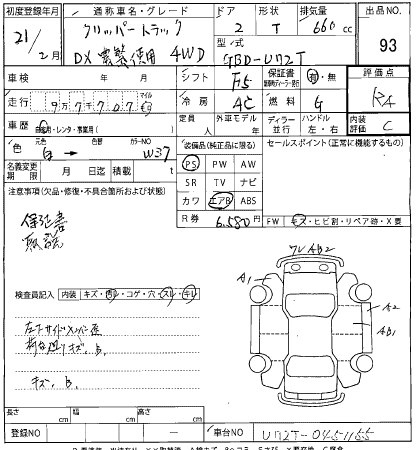 初度登録年月 通称車名・グレード ドア 形状 排気量 出品NO
21/2月 クリッパートラック 2 T 660cc 93
DX 農繁使用 4WD 型式 GBD-U72T
車検 年 月 シフト F5 保証書 有・無 評価点
走行 97707 冷房 AC 燃料 G RA
車歴 自家用・レンタ・事業用 定員 人 外車モデル 年 ディーラー 並行 ハンドル 左・右 内装評価 C
色 白→ 色替 カラーNO W37 装備品(純正品に限る) セールスポイント(正常に機能するもの)
名義変更期限 月 日迄 積載 t PS PW AW
注意事項(欠品・修復・不具合箇所および状態) SR TV ナビ
カワ エアB ABS
保証書 R券 6,580円
取説 FW キズ・ヒビ割・リペア跡・X要
ワレAB2
A1
A2
AB1
検査員記入 内装 キズ・汚レ・コゲ・穴・スレ・キレ
左下サイドメンバー歪
荷台廻りキズ、B
キズ、B
長さ cm 幅 cm 高さ cm
登録NO 車台NO U72T-0451155